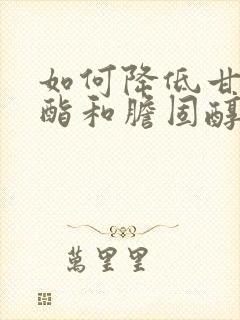 如何降低甘
酯和膽固醇
萬里里